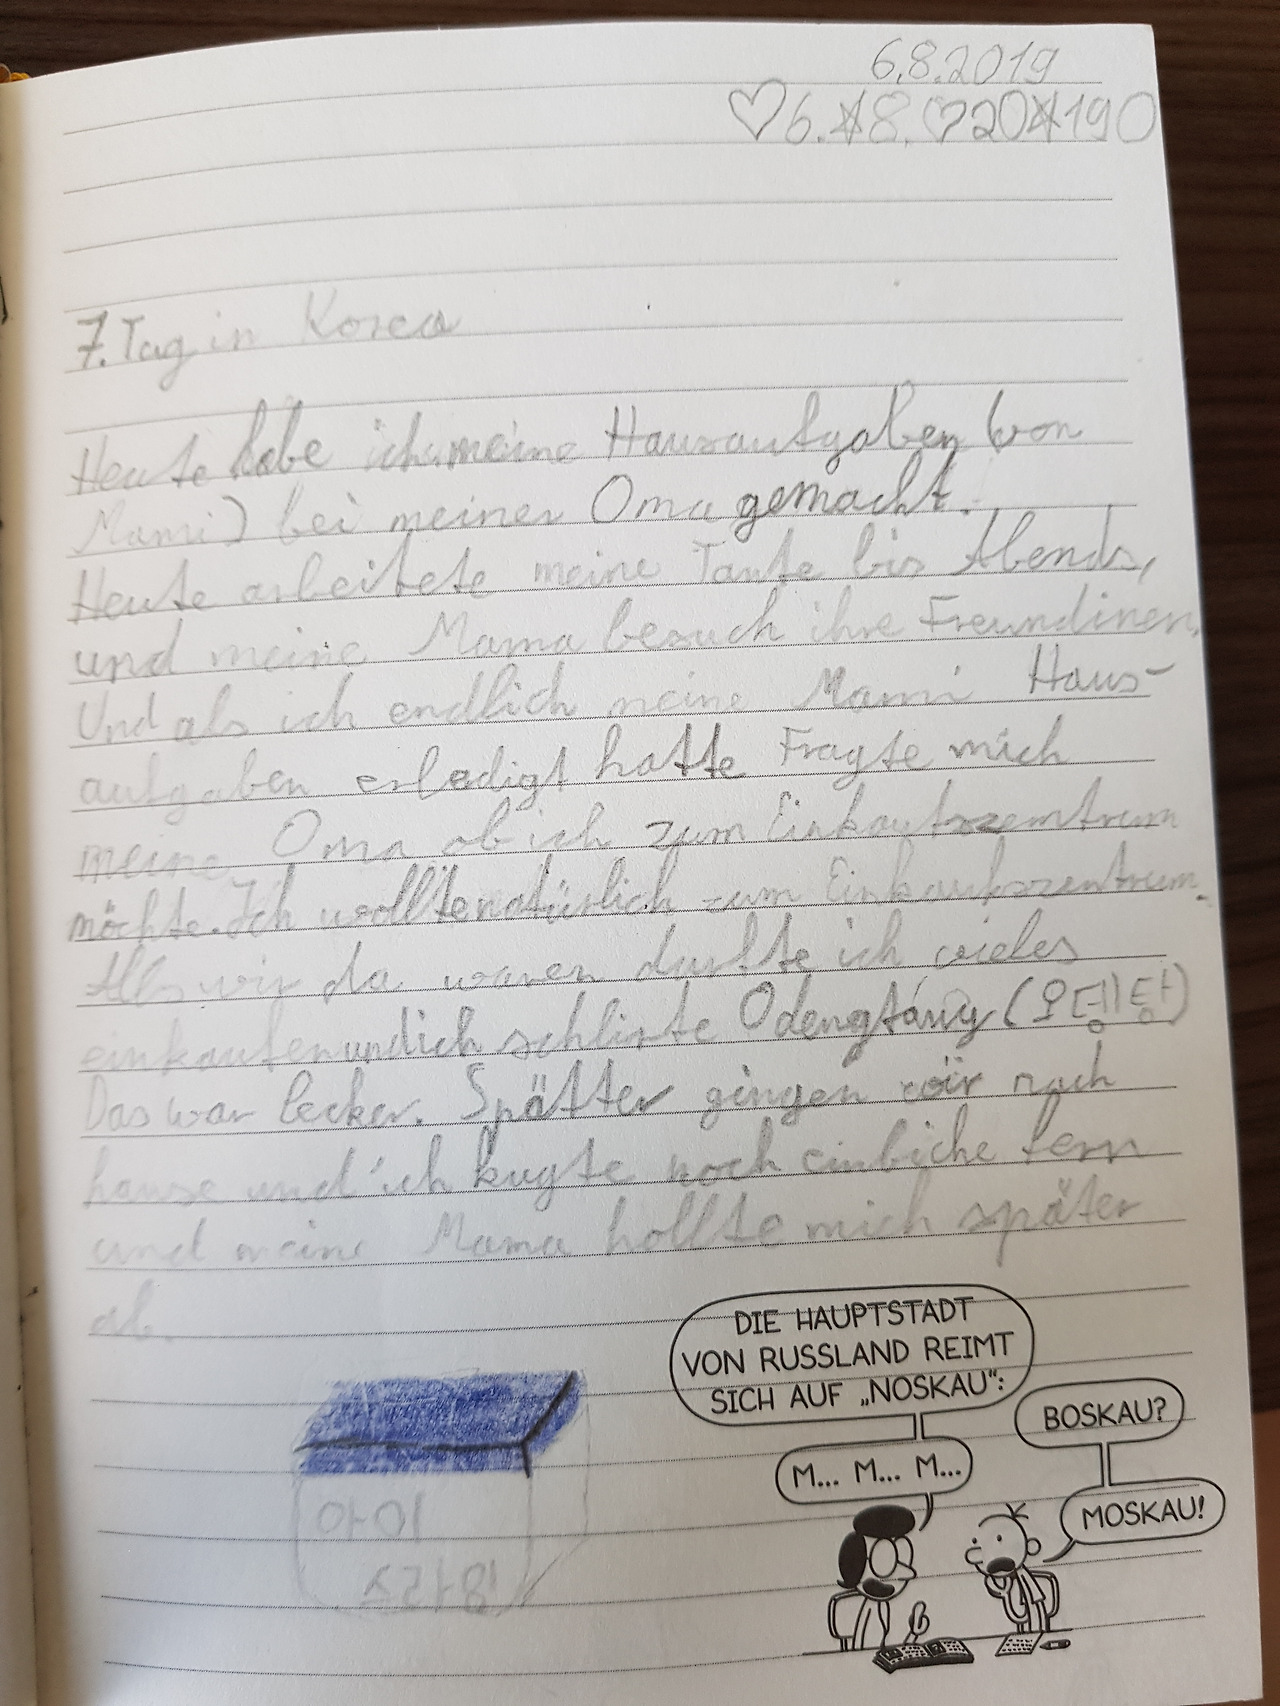 6.8.2019
♡6.☆8.♡20☆190
7. Tag in Korea
Heute habe ich meine Hausaufgaben (von
Mami) bei meiner Oma gemacht.
Heute arbeitete meine Tante bis Abends,
und meine Mama besuch ihre Freundinen.
Und als ich endlich meine Mami Haus-
aufgaben erledigt hatte Fragte mich
meine Oma ob ich zum Einkaufszentrum
möchte. Ich wollte natürlich zum Einkaufszentrum.
Als wir da waren durfte ich vieles
einkaufen und ich schlirfte Odengtang (오뎅탕)
Das war lecker. Spätter gingen wir nach
hause und ich kugte noch einbiche fern
und meine Mama hollte mich später
ab.
DIE HAUPTSTADT
VON RUSSLAND REIMT
SICH AUF „NOSKAU“:
BOSKAU?
M... M... M...
MOSKAU!
아이
스라임